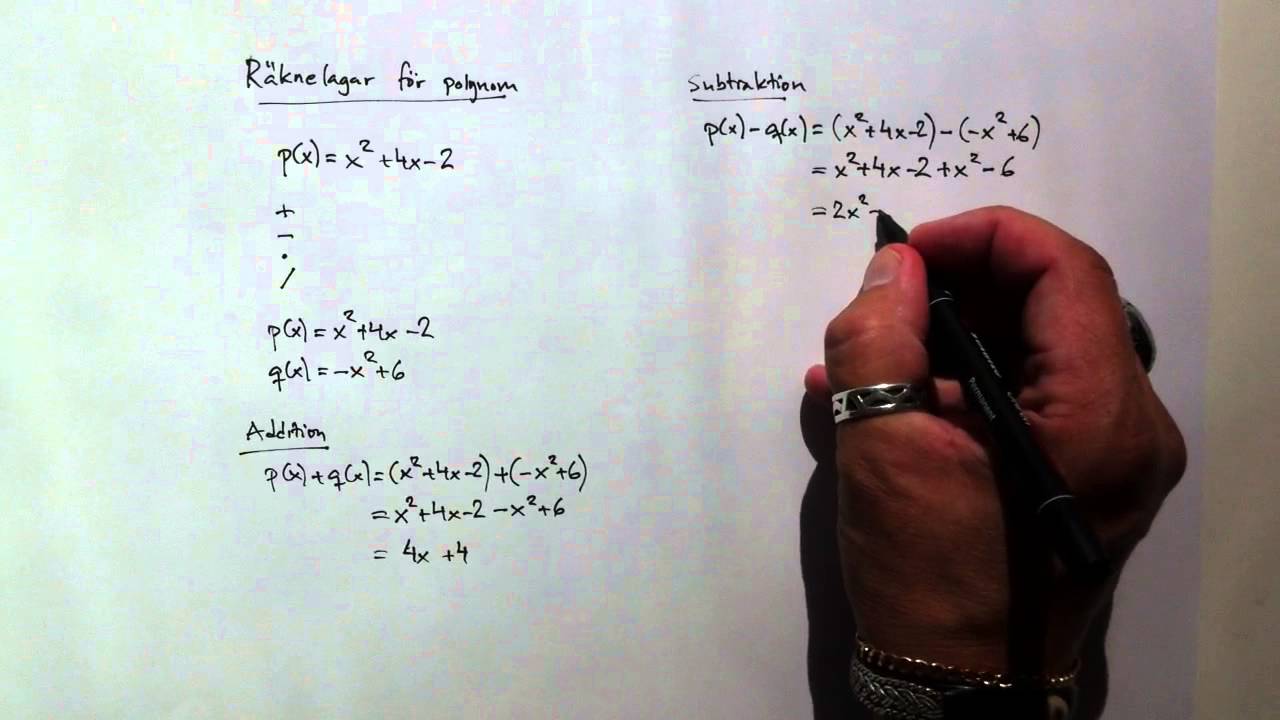 Räknelagar för polynom
p(x) = x² + 4x − 2
+
−
·
/
p(x) = x² + 4x − 2
q(x) = −x² + 6
Addition
p(x) + q(x) = (x² + 4x − 2) + (−x² + 6)
= x² + 4x − 2 − x² + 6
= 4x + 4
Subtraktion
p(x) − q(x) = (x² + 4x − 2) − (−x² + 6)
= x² + 4x − 2 + x² − 6
= 2x² −
Permanent